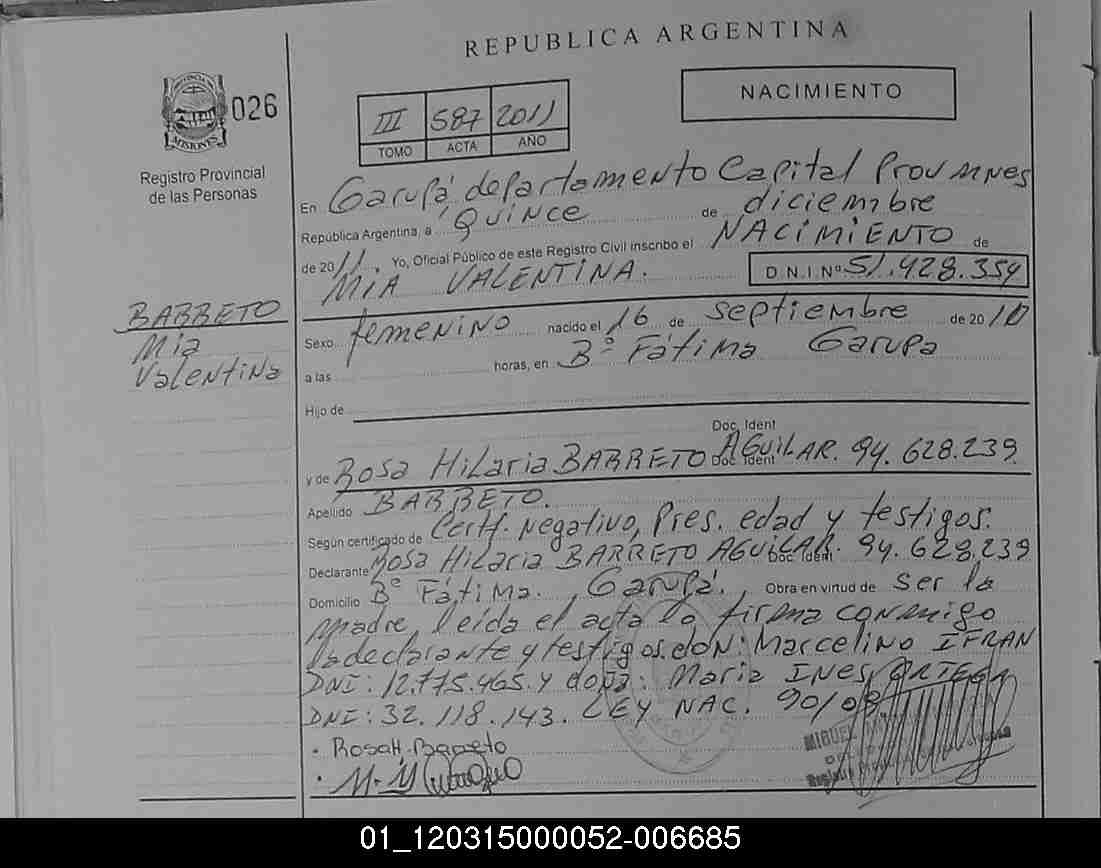 REPUBLICA ARGENTINA
NACIMIENTO
026
MISIONES
Registro Provincial
de las Personas
III 587 2011
TOMO ACTA AÑO
En Garupá departamento Capital Prov Mnes
República Argentina, a Quince de diciembre
de 2011. Yo, Oficial Público de este Registro Civil inscribo el NACIMIENTO de
MIA VALENTINA. D.N.I.Nº 51.428.354
BARRETO
Mia
Valentina
Sexo femenino nacido el 16 de septiembre de 2010
a las horas, en Bº Fátima Garupa
Hijo de
Doc. Ident
y de Rosa Hilaria BARRETO AGUILAR. Doc. Ident 94.628.239.
Apellido BARRETO.
Según certificado de Certf. Negativo, Pres. edad y testigos.
Declarante Rosa Hilaria BARRETO AGUILAR. Doc. Ident 94.628.239
Domicilio Bº Fátima. Garupá. Obra en virtud de ser la
madre, leída el acta la firma conmigo
la declarante y testigos. don: Marcelino IFRAN
DNI: 12.775.465. y doña: Maria INES ORTEGA
DNI: 32.118.143. LEY NAC. 90/08
Rosa H. Barreto
MIGUEL
01_120315000052-006685